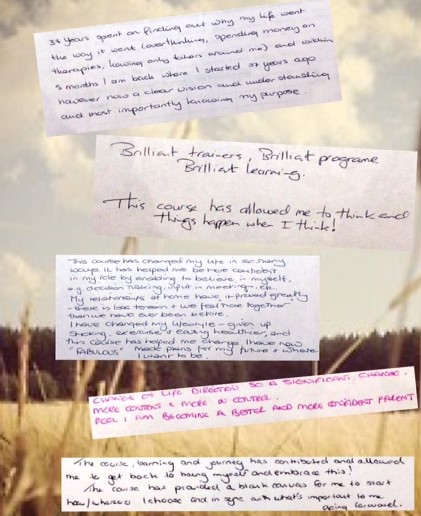 38 years spent on finding out why my life went
the way it went (overthinking, spending money on
therapies, having only takers around me) and within
5 months I am back where I started 37 years ago
however now a clear vision and understanding
and most importantly knowing my purpose.
Brilliant trainers, Brilliant programe
Brilliant learning.
This course has allowed me to think and
things happen when I think!
This course has changed my life in so many
ways, it has helped me be more confident
in my role by enabling to believe in myself,
e.g. decision making, input in meetings, etc..
My relationships at home have improved greatly
- there is less tension & we feel more "together"
than we have ever been before.
I have changed my lifestyle - given up
smoking, exercise & eating healthier, and
this course has helped me change. I have now
"FABULOUS" made plans for my future & where
I want to be.
CHANGE OF LIFE DIRECTION SO A SIGNIFICANT CHANGE.
MORE CONTENT & MORE IN CONTROL.
FEEL I AM BECOMING A BETTER AND MORE CONFIDENT PARENT
The course, learning and journey has contributed and allowed
me to get back to being myself and embrace this!
The course has provided a blank canvas for me to start
how/where I choose and in sync with what's important to me
going forward.